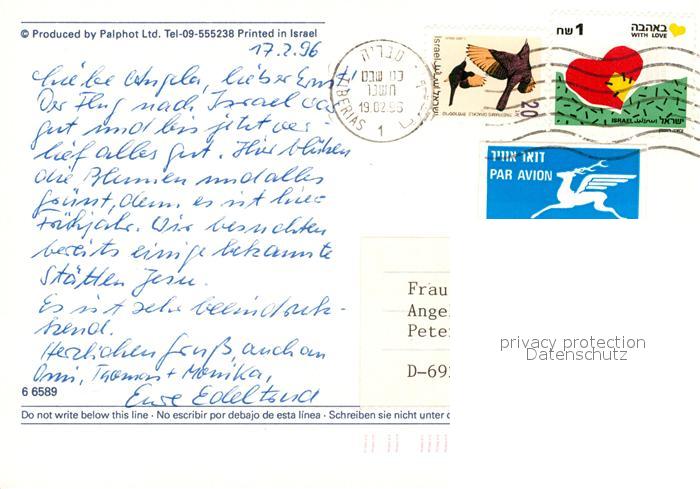 © Produced by Palphot Ltd. Tel-09-555238 Printed in Israel
17.2.96
Liebe Angela, lieber Ernst!
Der Flug nach Israel war
gut und bis jetzt ver-
lief alles gut. Hier blühen
die Blumen und alles
grünt, denn es ist hier
Frühjahr. Wir besuchten
bereits einige bekannte
Stätten Jesu.
Es ist sehr beeindruk-
kend.
Herzlichen Gruß, auch an
Omi, Thomas + Monika,
Eure Edeltraud
6 6589
Do not write below this line · No escribir por debajo de esta línea · Schreiben sie nicht unter d
טבריה
19.02.96
TIBERIAS 1
Israel
20
1 שח
באהבה
WITH LOVE
ISRAEL ישראל
דואר אוויר
PAR AVION
Frau
Ange
Pete
D-69
privacy protection
Datenschutz